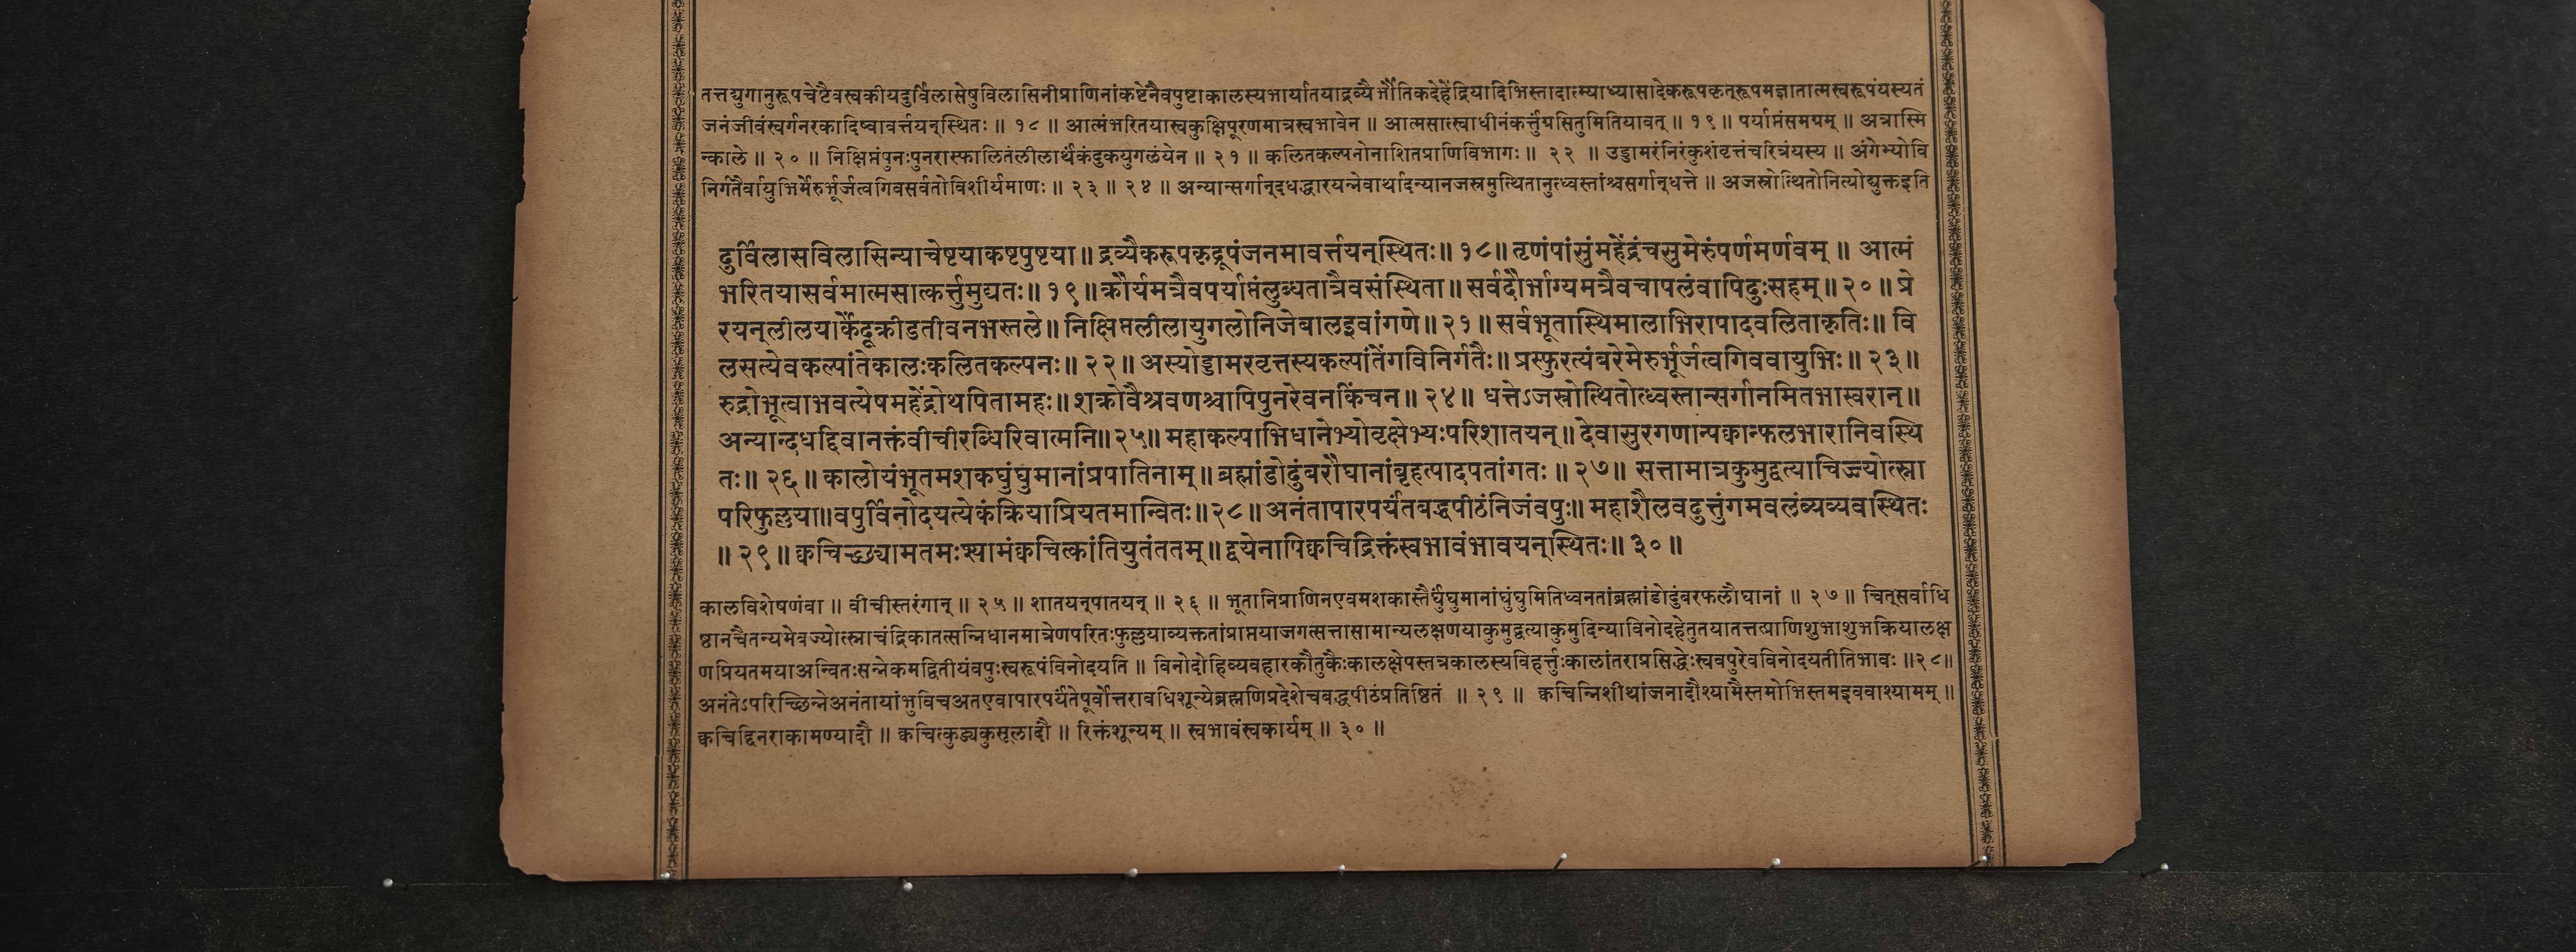 तत्तद्युगानुरूपचेष्टैवस्वकीयदुर्विलासेषुविलासिनीप्राणिनांकष्टेनैवपुष्टाकालस्यभार्यातयाद्रव्यैर्भौतिकदेहेंद्रियादिभिस्तादात्म्याध्यासादेकरूपकृत्‌रूपमज्ञातात्मस्वरूपंयस्यतं
जनंजीवंस्वर्गनरकादिष्वावर्त्तयन्‌स्थितः ॥ १८ ॥ आत्मंभरितयास्वकुक्षिपूरणमात्रस्वभावेन ॥ आत्मसात्स्वाधीनंकर्त्तुंग्रसितुमितियावत् ॥ १९ ॥ पर्याप्तंसमग्रम् ॥ अत्रास्मि
न्काले ॥ २० ॥ निक्षिप्तंपुनःपुनरास्फालितंलीलार्थंकंदुकयुगलंयेन ॥ २१ ॥ कलितकल्पनोनाशितप्राणिविभागः ॥ २२ ॥ उड्डामरंनिरंकुशंवृत्तंचरित्रंयस्य ॥ अंगेभ्योवि
निर्गतैर्वायुभिर्मेरुर्भूर्जत्वगिवसर्वतोविशीर्यमाणः ॥ २३ ॥ २४ ॥ अन्यान्सर्गान्‌दधद्धारयन्नेवार्थादन्यानजस्रमुत्थितानुत्ध्वस्तांश्चसर्गान्‌धत्ते ॥ अजस्रोत्थितोनित्योद्युक्तइति
दुर्विलासविलासिन्याचेष्टयाकष्टपुष्टया ॥ द्रव्यैकरूपकृद्रूपंजनमावर्त्तयन्‌स्थितः ॥ १८ ॥ तृणंपांसुंमहेंद्रंचसुमेरुंपर्णमर्णवम् ॥ आत्मं
भरितयासर्वमात्मसात्कर्त्तुमुद्यतः ॥ १९ ॥ क्रौर्यमत्रैवपर्याप्तंलुब्धतात्रैवसंस्थिता ॥ सर्वदौर्भाग्यमत्रैवचापलंवापिदुःसहम् ॥ २० ॥ प्रे
रयन्‌लीलयार्केंदूक्रीडतीवनभस्तले ॥ निक्षिप्तलीलायुगलोनिजेबालइवांगणे ॥ २१ ॥ सर्वभूतास्थिमालाभिरापादवलिताकृतिः ॥ वि
लसत्येवकल्पांतेकालःकलितकल्पनः ॥ २२ ॥ अस्योड्डामरवृत्तस्यकल्पांतेंगविनिर्गतैः ॥ प्रस्फुरत्यंबरेमेरुर्भूर्जत्वगिववायुभिः ॥ २३ ॥
रुद्रोभूत्वाभवत्येषमहेंद्रोथपितामहः ॥ शक्रोवैश्रवणश्चापिपुनरेवनकिंचन ॥ २४ ॥ धत्तेऽजस्रोत्थितोत्ध्वस्तान्सर्गानमितभास्वरान् ॥
अन्यान्दधद्दिवानक्तंवीचीरब्धिरिवात्मनि ॥ २५ ॥ महाकल्पाभिधानेभ्योवृक्षेभ्यःपरिशातयन् ॥ देवासुरगणान्पक्वान्फलभारानिवस्थि
तः ॥ २६ ॥ कालोयंभूतमशकघुंघुमानांप्रपातिनाम् ॥ ब्रह्मांडोदुंबरौघानांबृहत्पादपतांगतः ॥ २७ ॥ सत्तामात्रकुमुद्वत्याचिज्ज्योत्स्ना
परिफुल्लया ॥ वपुर्विनोदयत्येकंक्रियाप्रियतमान्वितः ॥ २८ ॥ अनंतापारपर्यंतबद्धपीठंनिजंवपुः ॥ महाशैलवदुत्तुंगमवलंब्यव्यवस्थितः
॥ २९ ॥ क्वचिच्छ्यामतमःश्यामंक्वचित्कांतियुतंततम् ॥ द्वयेनापिक्वचिद्रिक्तंस्वभावंभावयन्‌स्थितः ॥ ३० ॥
कालविशेषणंवा ॥ वीचीस्तरंगान् ॥ २५ ॥ शातयन्‌पातयन् ॥ २६ ॥ भूतानिप्राणिनएवमशकास्तैर्घुंघुमानांघुंघुमितिध्वनतांब्रह्मांडोदुंबरफलौघानां ॥ २७ ॥ चित्‌सर्वाधि
ष्ठानचैतन्यमेवज्योत्स्नाचंद्रिकातत्सन्निधानमात्रेणपरितःफुल्लयाव्यक्ततांप्राप्तयाजगत्सत्तासामान्यलक्षणयाकुमुद्वत्याकुमुदिन्याविनोदहेतुतयातत्तत्प्राणिशुभाशुभक्रियालक्ष
णप्रियतमयाअन्वितःसन्नेकमद्वितीयंवपुःस्वरूपंविनोदयति ॥ विनोदोहिव्यवहारकौतुकैःकालक्षेपस्तत्रकालस्यविहर्त्तुःकालांतराप्रसिद्धेःस्ववपुरेवविनोदयतीतिभावः ॥ २८ ॥
अनंतेऽपरिच्छिन्नेअनंतायांभुविचअतएवापारपर्यंतेपूर्वोत्तरावधिशून्येब्रह्मणिप्रदेशेचबद्धपीठंप्रतिष्ठितं ॥ २९ ॥ क्वचिन्निशीथांजनादौश्यामैस्तमोभिस्तमइववाश्यामम् ॥
क्वचिद्दिनराकामण्यादौ ॥ क्वचित्कुड्यकुसूलादौ ॥ रिक्तंशून्यम् ॥ स्वभावंस्वकार्यम् ॥ ३० ॥